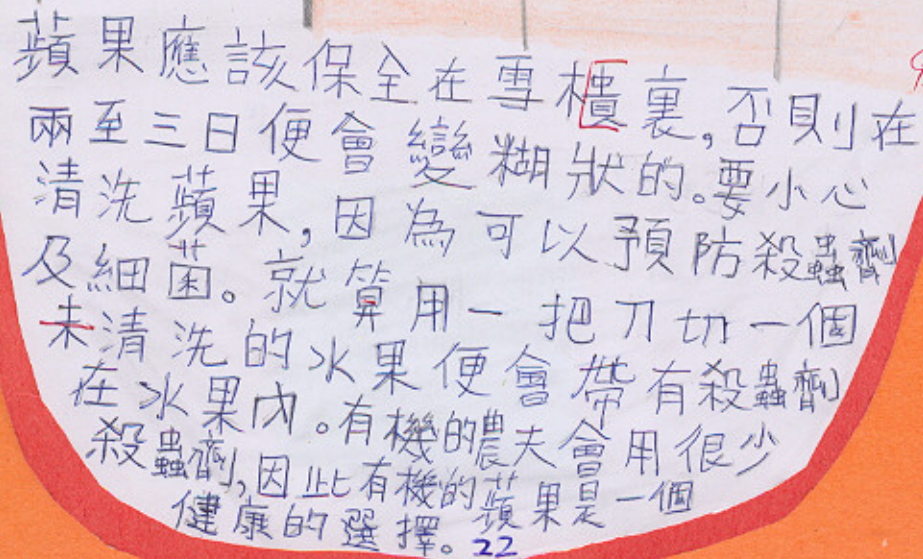 蘋果應該保全在雪櫃裏,否則在
兩至三日便會變糊狀的。要小心
清洗蘋果,因為可以預防殺蟲劑
及細菌。就算用一把刀切一個
未清洗的水果便會帶有殺蟲劑
在水果內。有機的農夫會用很少
殺蟲劑,因此有機的蘋果是一個
健康的選擇。22